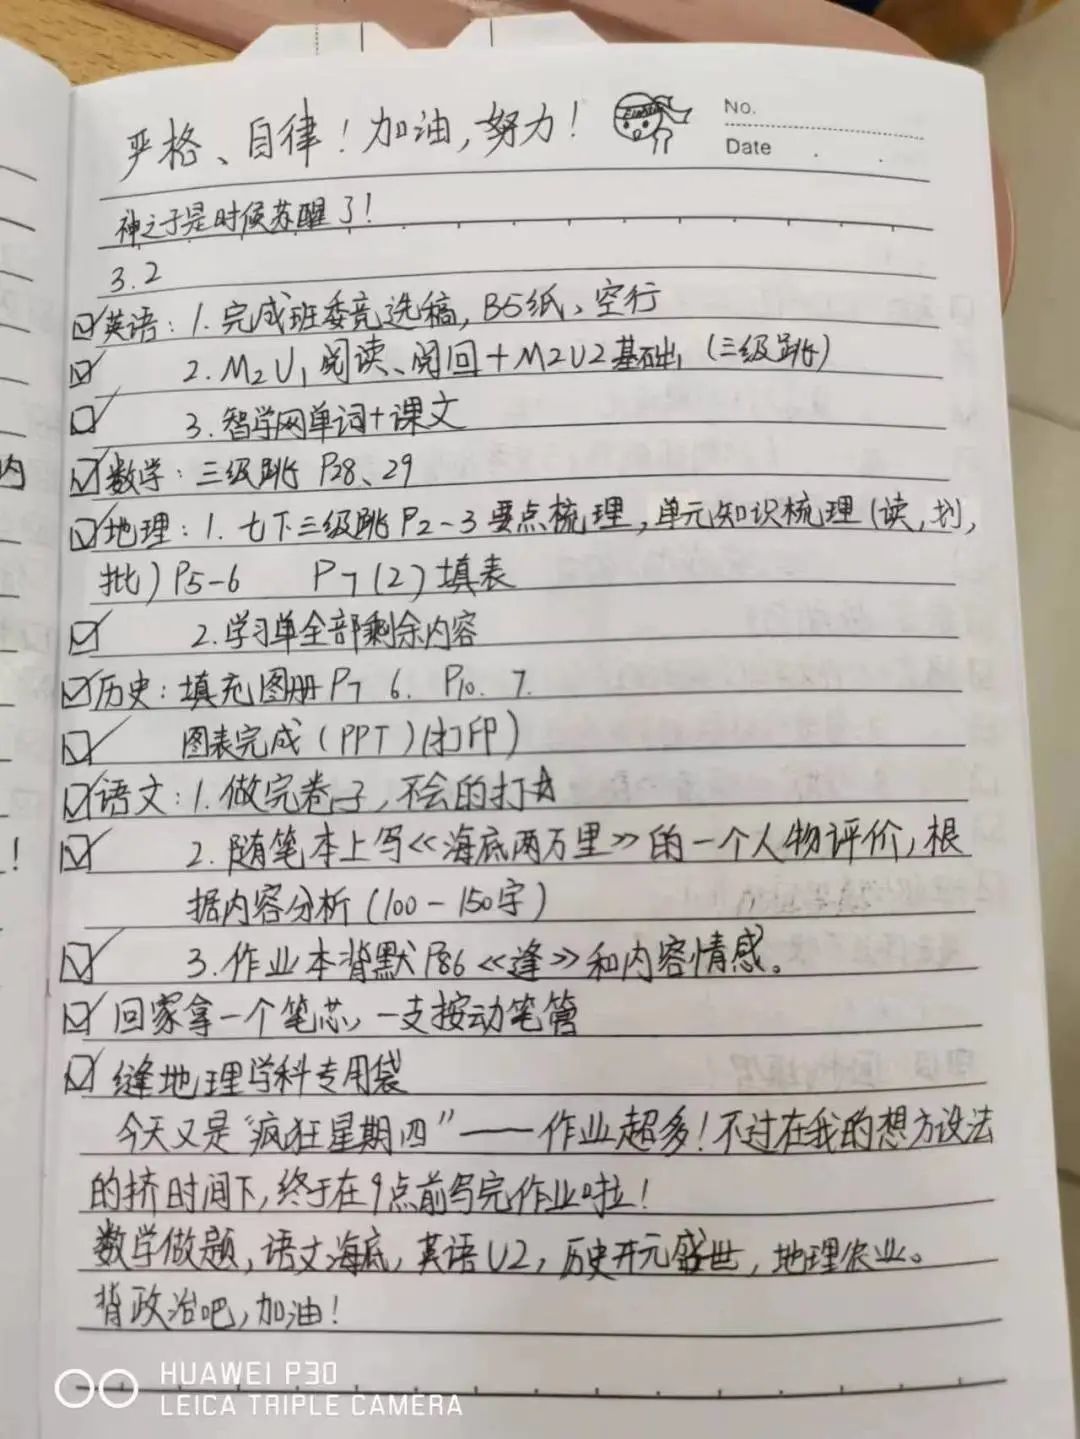 严格、自律！加油，努力！
No.
Date
神之于是时候苏醒了！
3.2
英语：1.完成班委竞选稿，B5纸、空行
2.M2U1阅读、阅回+M2U2基础（三级跳）
3.智学网单词+课文
数学：三级跳 P28、29
地理：1.七下三级跳P2-3要点梳理，单元知识梳理(读，划，
批)P5-6 P7(2)填表
2.学习单全部剩余内容
历史：填充图册P7 6. P10. 7.
图表完成(PPT)(打印)
语文：1.做完卷子，不会的打☆
2.随笔本上写《海底两万里》的一个人物评价，根
据内容分析(100-150字)
3.作业本背默P86《逢》和内容情感。
回家拿一个笔芯，一支按动笔管
缝地理学科专用袋
今天又是“疯狂星期四”——作业超多！不过在我的想方设法
的挤时间下，终于在9点前写完作业啦！
数学做题，语文海底，英语U2，历史开元盛世，地理农业。
背政治吧，加油！
HUAWEI P30
LEICA TRIPLE CAMERA
内
！